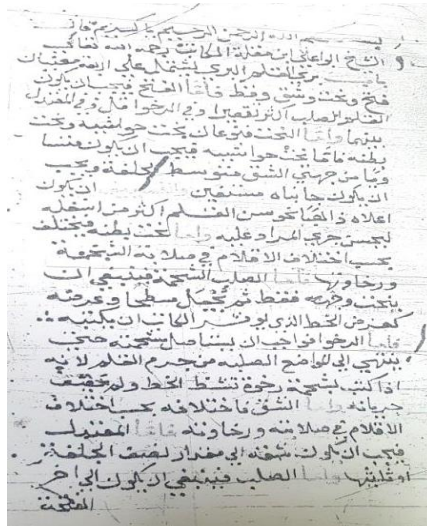 بسم الله الرحمن الرحيم
الشيخ ابو علي ابن مقلة الكاتب رحمه الله تعالى
بري القلم البري يشتمل على اربعة معان
فتح ونحت وشق وقط فاما الفتح فيجب ان يكون
في القلم الصلب اكثر تقعيرا وفي الرخو اقل وفي المعتدل
بينهما واما النحت فنوعان نحت حواشيه ونحت
بطنه فاما نحت حواشيه فيجب ان يكون متساويا
من جهتي الشق متوسط الجلفة ويجب
ان يكون جانباه ان يكون
اعلاه ذاهبا نحو سن القلم اكثر من اسفله
ليحسن جري المداد عليه واما نحت بطنه فيختلف
بحسب اختلاف الاقلام في صلابة الشحمة
ورخاوتها فاما الصلب الشحمة فينبغي ان
ينحت وجهه فقط ثم يجعل مسطحا وعرضه
كعرض الخط الذي يوثر الكاتب ان يكتبه
فاما الرخو فواجب ان تستاصل شحمته حتى
ينتهي الى المواضع الصلبة من جرم القلم لانه
اذا كتب بشحمة رخوة تشظى الخط ولم يخف
جريانه واما الشق فاختلافه بحسب اختلاف
الاقلام في صلابته ورخاوته فاما المعتدل
فيجب ان يكون شقه الى مقدار نصف الجلفة
او ثلثيها واما الصلب فينبغي ان يكون الى اخر
الفتحة